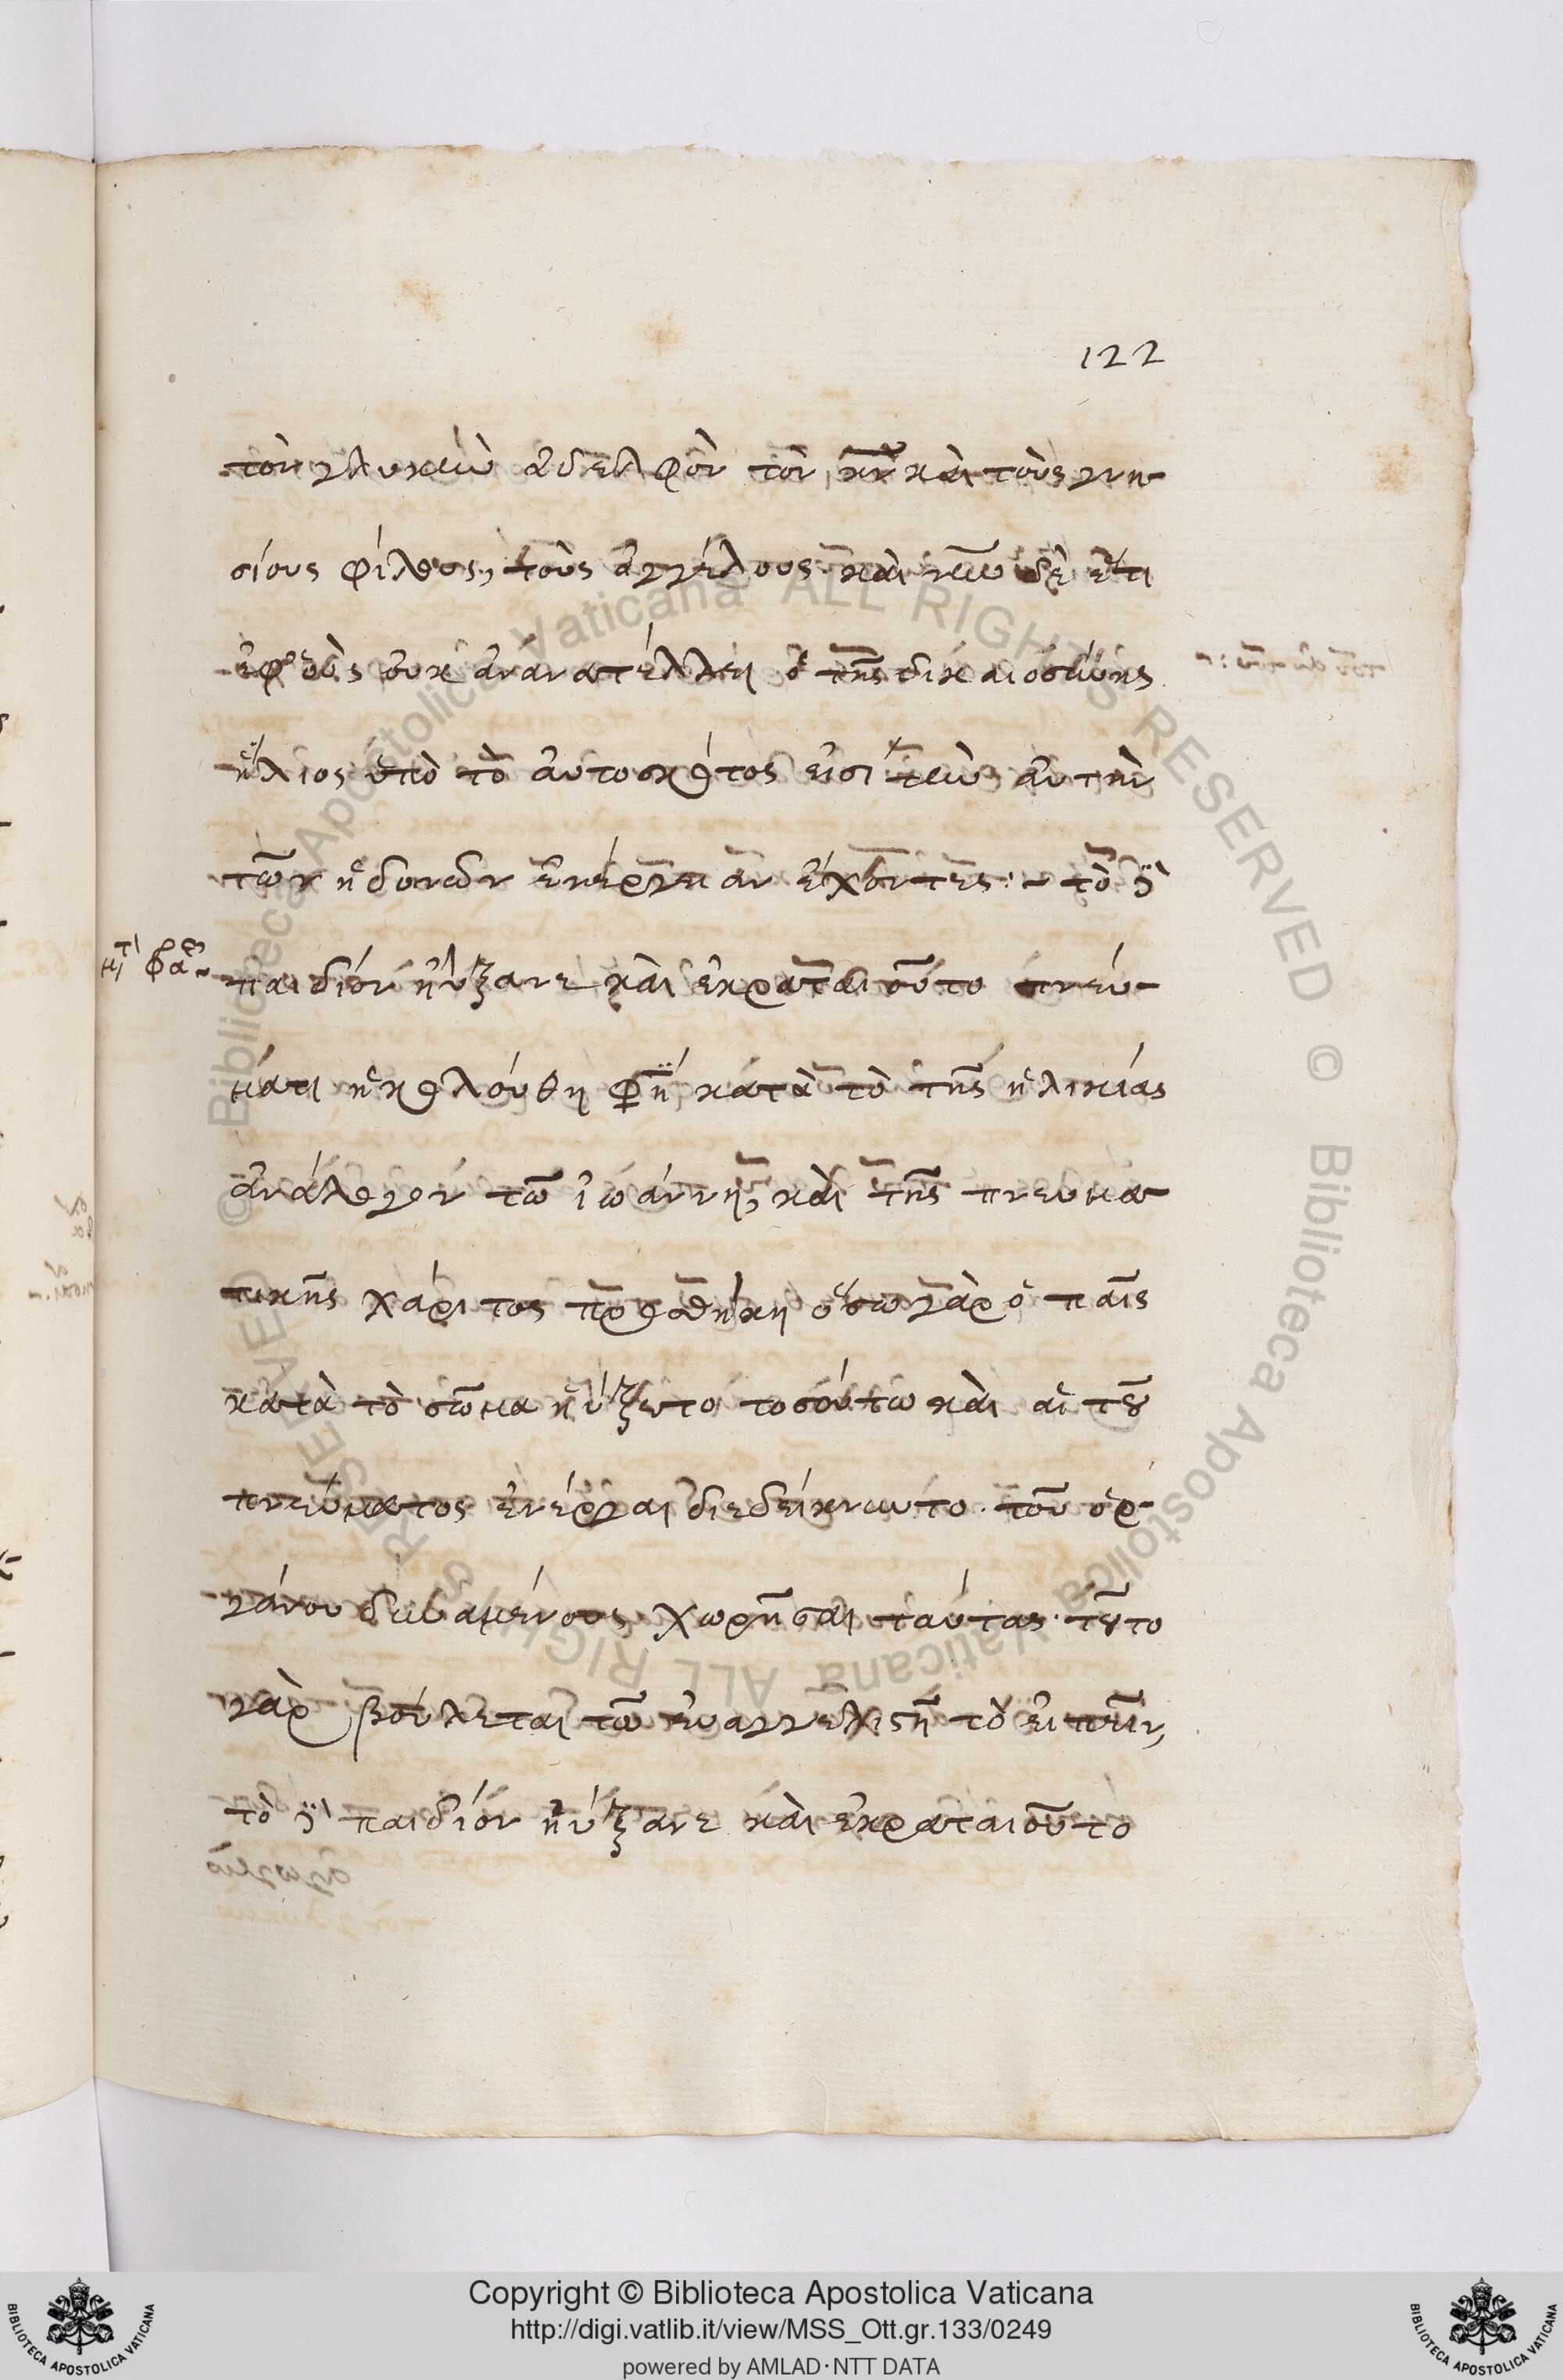 122
τὸν γλυκὺν ἀδελφὸν τὸν κν καὶ τοὺς γνη-
σίους φίλους, τοὺς ἀγγέλους· καὶ νῦν δὲ ἔτι
ἐφ' οὓς οὐκ ἀνάνατέλλει ὁ τῆς δικαιοσύνης
ἥλιος ὑπὸ τὸ αὐτοσκότος εἰσὶ τὴν αὐτὴν
τῶν ἡδονῶν ἐνέργειαν ἔχοντες:- τὸ δὲ
παιδίον ηὔξανε καὶ ἐκραταιοῦτο πνεύ-
ματι ἠκολούθη κατὰ τὸ τῆς ἡλικίας
ἀνάλογον τῶ ἰωάννη, καὶ τῆς πνευμα-
τικῆς χάριτος προσθήκη ὅσω γὰρ ὁ παῖς
κατὰ τὸ σῶμα ηὔξετο τοσούτω καὶ αἱ τοῦ
πνεύματος ἐνέργαι διεδείκνυντο· τοῦ ὀρ-
γάνου δυναμένους χωρῆσαι ταύτας· τοῦτο
γὰρ βούλεται τῶ εὐαγγελιστῆ τὸ εἰπεῖν,
τὸ δὲ παιδίον ηὔξανε καὶ ἐκραταιοῦτο
Copyright © Biblioteca Apostolica Vaticana
http://digi.vatlib.it/view/MSS_Ott.gr.133/0249
powered by AMLAD·NTT DATA
BIBLIOTECA APOSTOLICA VATICANA
BIBLIOTECA APOSTOLICA VATICANA
© Biblioteca Apostolica Vaticana ALL RIGHTS RESERVED © Biblioteca Apostolica Vaticana ALL RIGHTS RESERVED